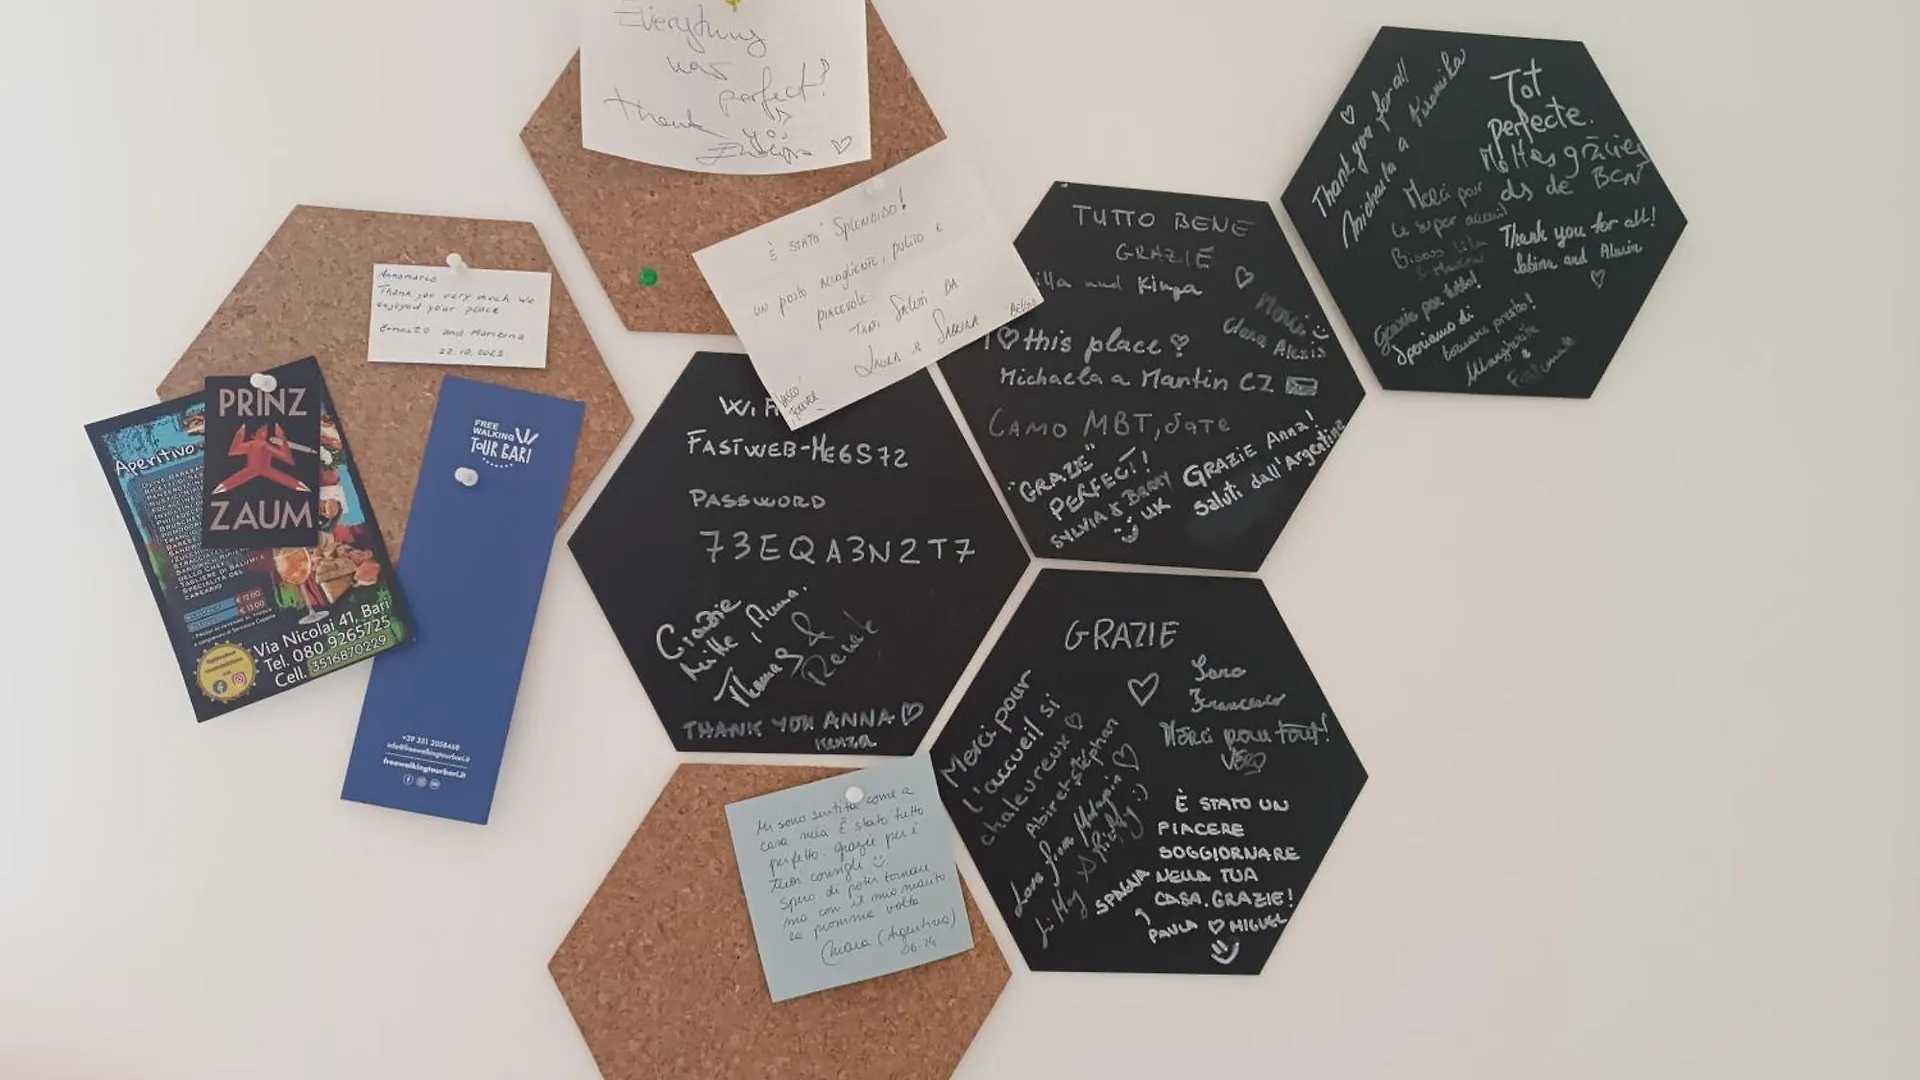 Everything
was
perfect!
Thank you
È STATO SPLENDIDO!
UN POSTO ACCOGLIENTE, PULITO E
PIACEVOLE
TANTI SALUTI DA
LAURA E SABRINA
VASCO
FOREVER
Annamaria
Thank you very much. We
enjoyed your place.
Ernesto and
22.10.2023
PRINZ
ZAUM
Aperitivo
€ 12.00
€ 13.00
Via Nicolai 41, Bari
Tel. 080 9265725
Cell. 3516870229
FREE
WALKING
TOUR BARI
+39 351 2058468
info@freewalkingtourbari.it
freewalkingtourbari.it
WiF
FASTWEB-HE6S72
PASSWORD
73EQA3N2T7
Grazie
mille, Anna.
Thomas &
Renate
THANK YOU ANNA
KENZA
TUTTO BENE
GRAZIE
illa and Kinga
Merci
clara Alexis
I ♡ this place
Michaela a Martin CZ
CAMO MBT, SATE
"GRAZIE"
PERFECT!
SYLVIA & BARRY
UK
GRAZIE Anna!
Saluti dall'Argentina
Thank you for all
Michaela a Veronika
Tot
perfecte.
Moltes gràcies
ds de BCN
Merci pour
le super accueil
Bisous Lila
Thank you for all!
Sabina and Alwin
Grazie per tutto!
Speriamo di
tornare presto!
Margherita
&
GRAZIE
Sara
Francesco
Merci pour
l'accueil si
chaleureux
Abir et stéphan
Merci pour tout!
Love from Malaysia :)
È STATO UN
PIACERE
SOGGIORNARE
NELLA TUA
CASA. GRAZIE!
PAULA ♡ MIGUEL
SPAGNA
Mi sono sentita come a
casa mia È stato tutto
perfetto. grazie per i
tuoi consigli
Spero di poter tornare
ma con il mio marito
la prossima volta
Chiara (Argentina)
06-24